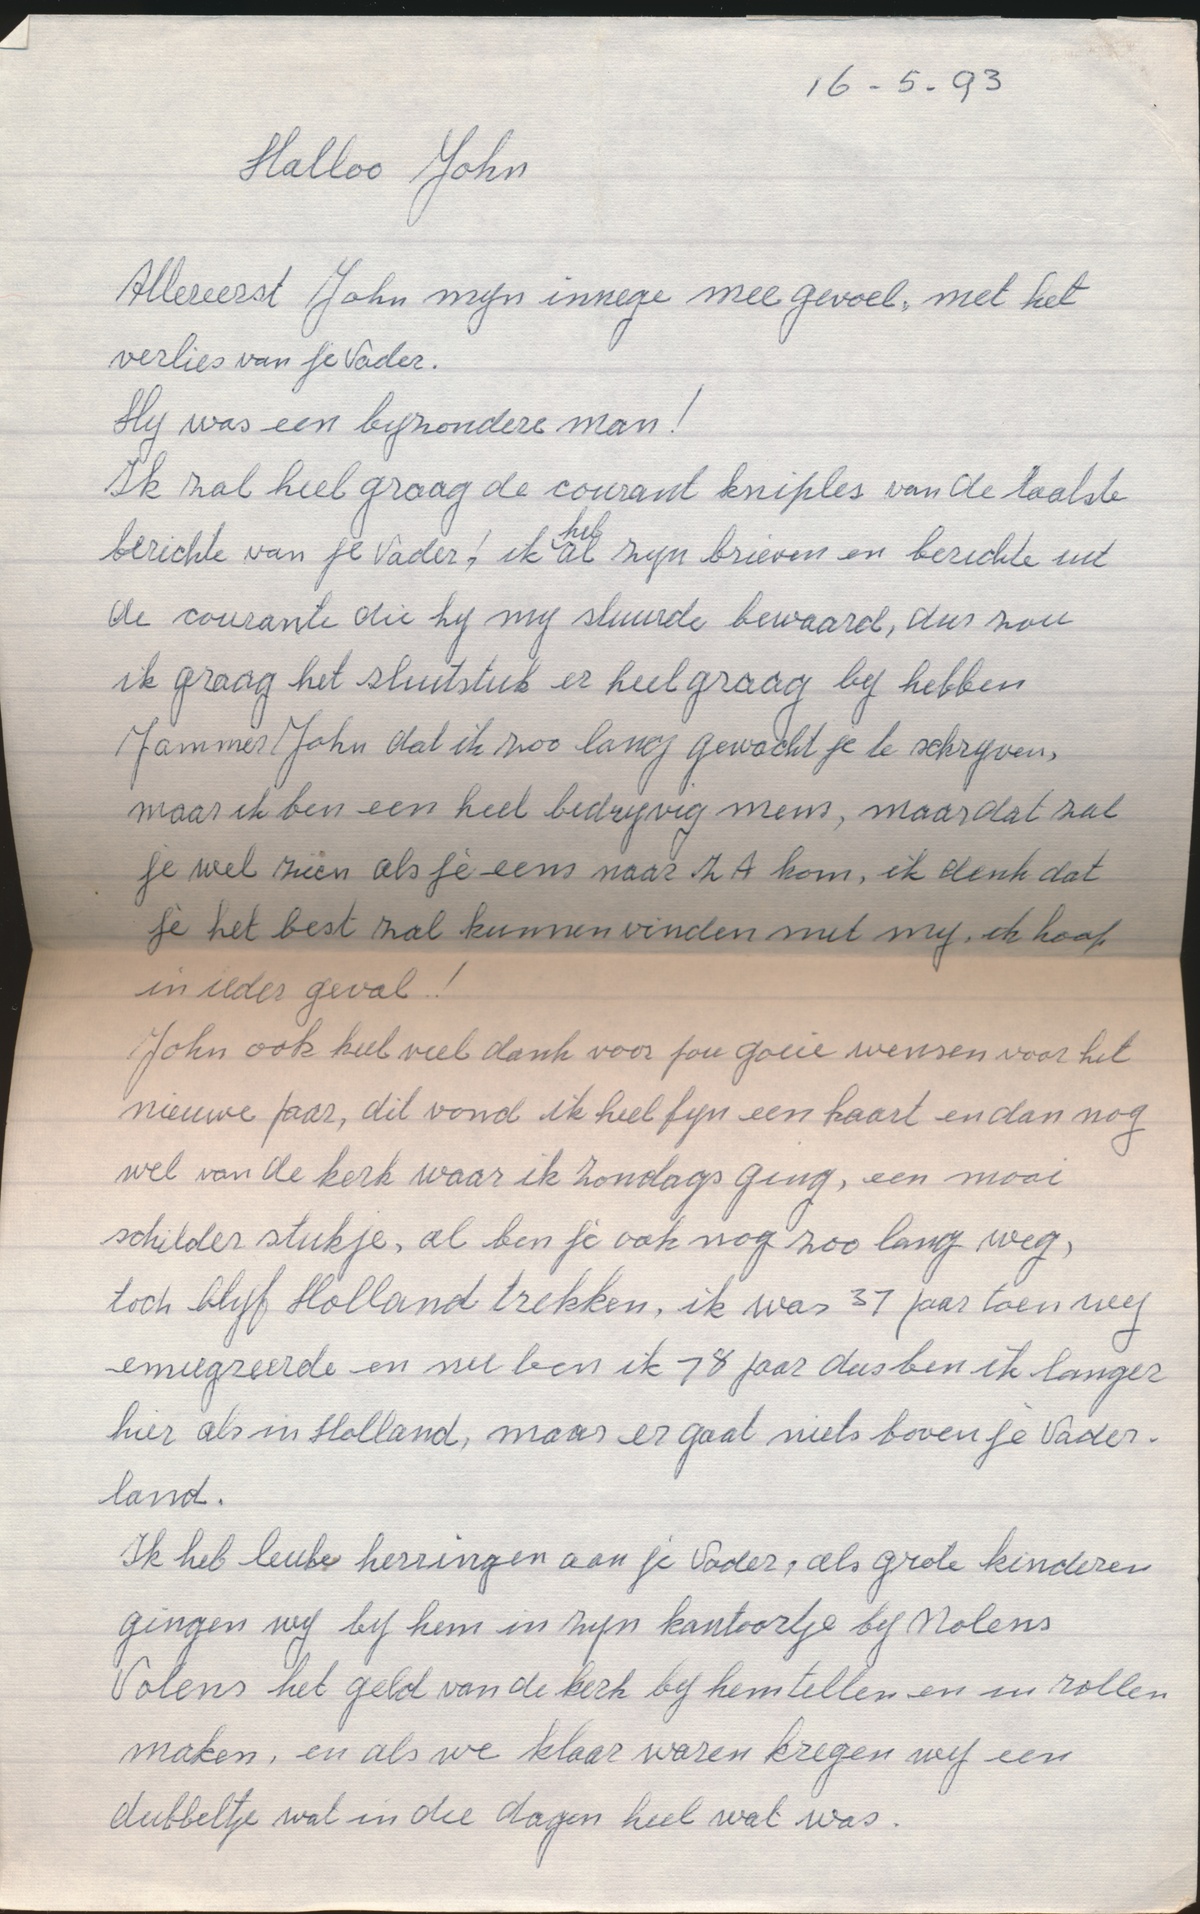 16 - 5 - 93
Halloo John
Allereerst John myn innege mee gevoel, met het
verlies van je Vader.
Hy was een byzondere man!
Ik zal heel graag de courant kniples van de laatste
berichte van je Vader! ik heb al zyn brieven en berichte uit
de courante die hy my stuurde bewaard, dus zou
ik graag het sluitstuk er heel graag by hebben
Jammer John dat ik zoo lang gewacht je te schryven,
maar ik ben een heel bedryvig mens, maar dat zal
je wel zien als je eens naar Z A kom, ik denk dat
je het best zal kunnen vinden met my, ik hoop
in ieder geval!
John ook heel veel dank voor jou goeie wensen voor het
nieuwe jaar, dit vond ik heel fyn een kaart en dan nog
wel van de kerk waar ik Zondags ging, een mooi
schilder stukje, al ben je ook nog zoo lang weg,
toch blyf Holland trekken, ik was 37 jaar toen wey
emiegreerde en nu ben ik 78 jaar dus ben ik langer
hier als in Holland, maar er gaat niets boven je Vader-
land.
Ik heb leuke herringen aan je Vader, als grote kinderen
gingen wy by hem in zyn kantoortje by Nolens
Volens het geld van de kerk by hem tellen en in rollen
maken, en als we klaar waren kregen wey een
dubbeltje wat in die dagen heel wat was.